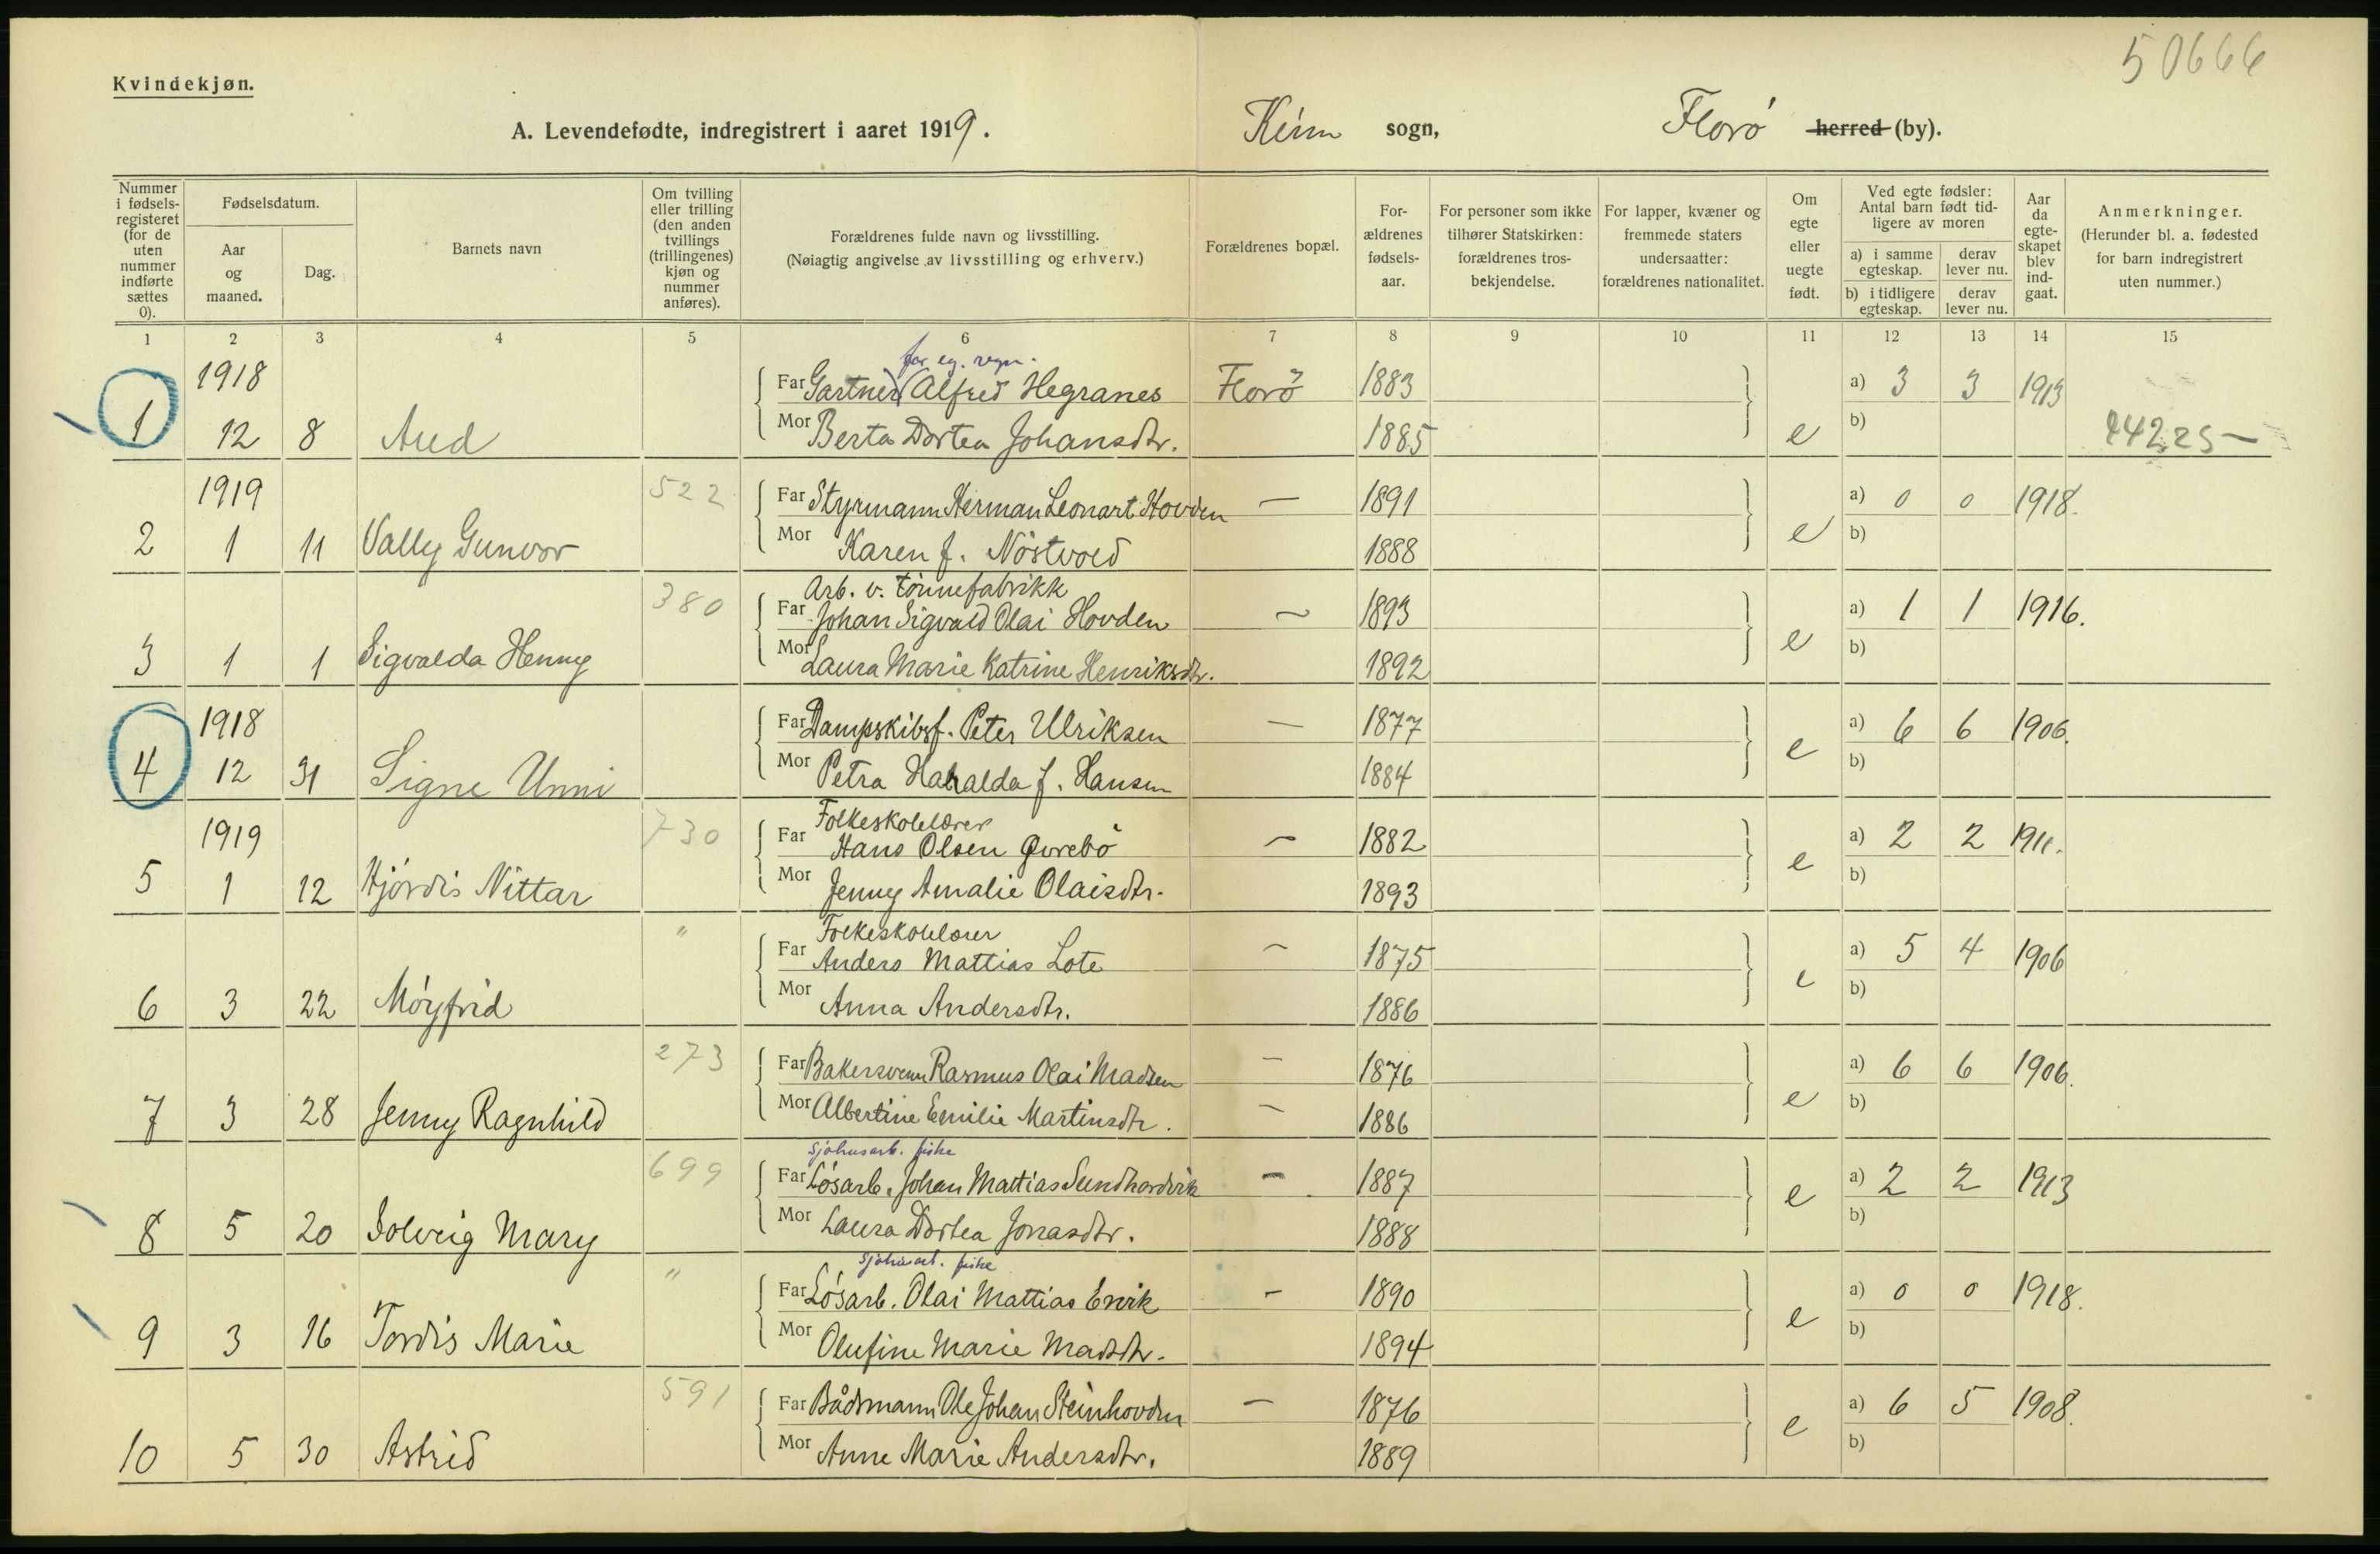 50666
Kvindekjøn.
A. Levendefødte, indregistrert i aaret 1919. Kinn sogn, Florø herred (by).
Nummer i fødsels-registeret (for de uten nummer indførte sættes 0).
Fødselsdatum.
Aar og maaned.
Dag.
Barnets navn
Om tvilling eller trilling (den anden tvillings (trillingenes) kjøn og nummer anføres).
Forældrenes fulde navn og livsstilling.
(Nøiagtig angivelse av livsstilling og erhverv.)
Forældrenes bopæl.
For-ældrenes fødsels-aar.
For personer som ikke tilhører Statskirken: forældrenes tros-bekjendelse.
For lapper, kvæner og fremmede staters undersaatter: forældrenes nationalitet.
Om egte eller uegte født.
Ved egte fødsler: Antal barn født tid-ligere av moren
a) i samme egteskap.
derav lever nu.
b) i tidligere egteskap.
derav lever nu.
Aar da egte-skapet blev ind-gaat.
Anmerkninger.
(Herunder bl. a. fødested for barn indregistrert uten nummer.)
1 2 3 4 5 6 7 8 9 10 11 12 13 14 15
for eg. regn.
1918 Far Gartner Alfred Hegranes Florø 1883 a) 3 3 1913
1 12 8 Aud Mor Berta Dortea Johansdtr. 1885 e b) 442.25 —
1919 522 Far Styrmann Herman Leonart Hovden — 1891 a) 0 0 1918.
2 1 11 Vally Gunvor Mor Karen f. Nöstvold 1888 e b)
Arb. v. tönnefabrikk
380 Far Johan Sigvald Olai Hovden — 1893 a) 1 1 1916.
3 1 1 Sigvalda Henny Mor Laura Marie Katrine Henriksdtr. 1892 e b)
1918 Far Dampskibsf. Peter Ulriksen — 1877 a) 6 6 1906.
4 12 31 Signe Unni Mor Petra Haralda f. Hansen 1884 e b)
Folkeskolelærer
1919 730 Far Hans Olsen Øvrebö — 1882 a) 2 2 1911.
5 1 12 Hjördis Nittar Mor Jenny Amalie Olaisdtr. 1893 e b)
Folkeskolelærer
" Far Anders Mattias Lote — 1875 a) 5 4 1906
6 3 22 Möyfrid Mor Anna Andersdtr. 1886 e b)
273 Far Bakersvenn Rasmus Olai Madsen — 1876 a) 6 6 1906.
7 3 28 Jenny Ragnhild Mor Albertine Emilie Martinsdtr. — 1886 e b)
Sjöhusarb. fiske
699 Far Lösarb. Johan Mattias Sundhordvik — 1887 a) 2 2 1913
8 5 20 Solveig Mary Mor Laura Dortea Jonasdtr. 1888 e b)
Sjöhusarb. fiske
" Far Lösarb. Olai Mattias Ervik — 1890 a) 0 0 1918.
9 3 16 Tordis Marie Mor Olufine Marie Madsdtr. 1894 e b)
591 Far Båtsmann Ole Johan Steinhovden — 1876 a) 6 5 1908.
10 5 30 Astrid Mor Anne Marie Andersdtr. 1889 e b)